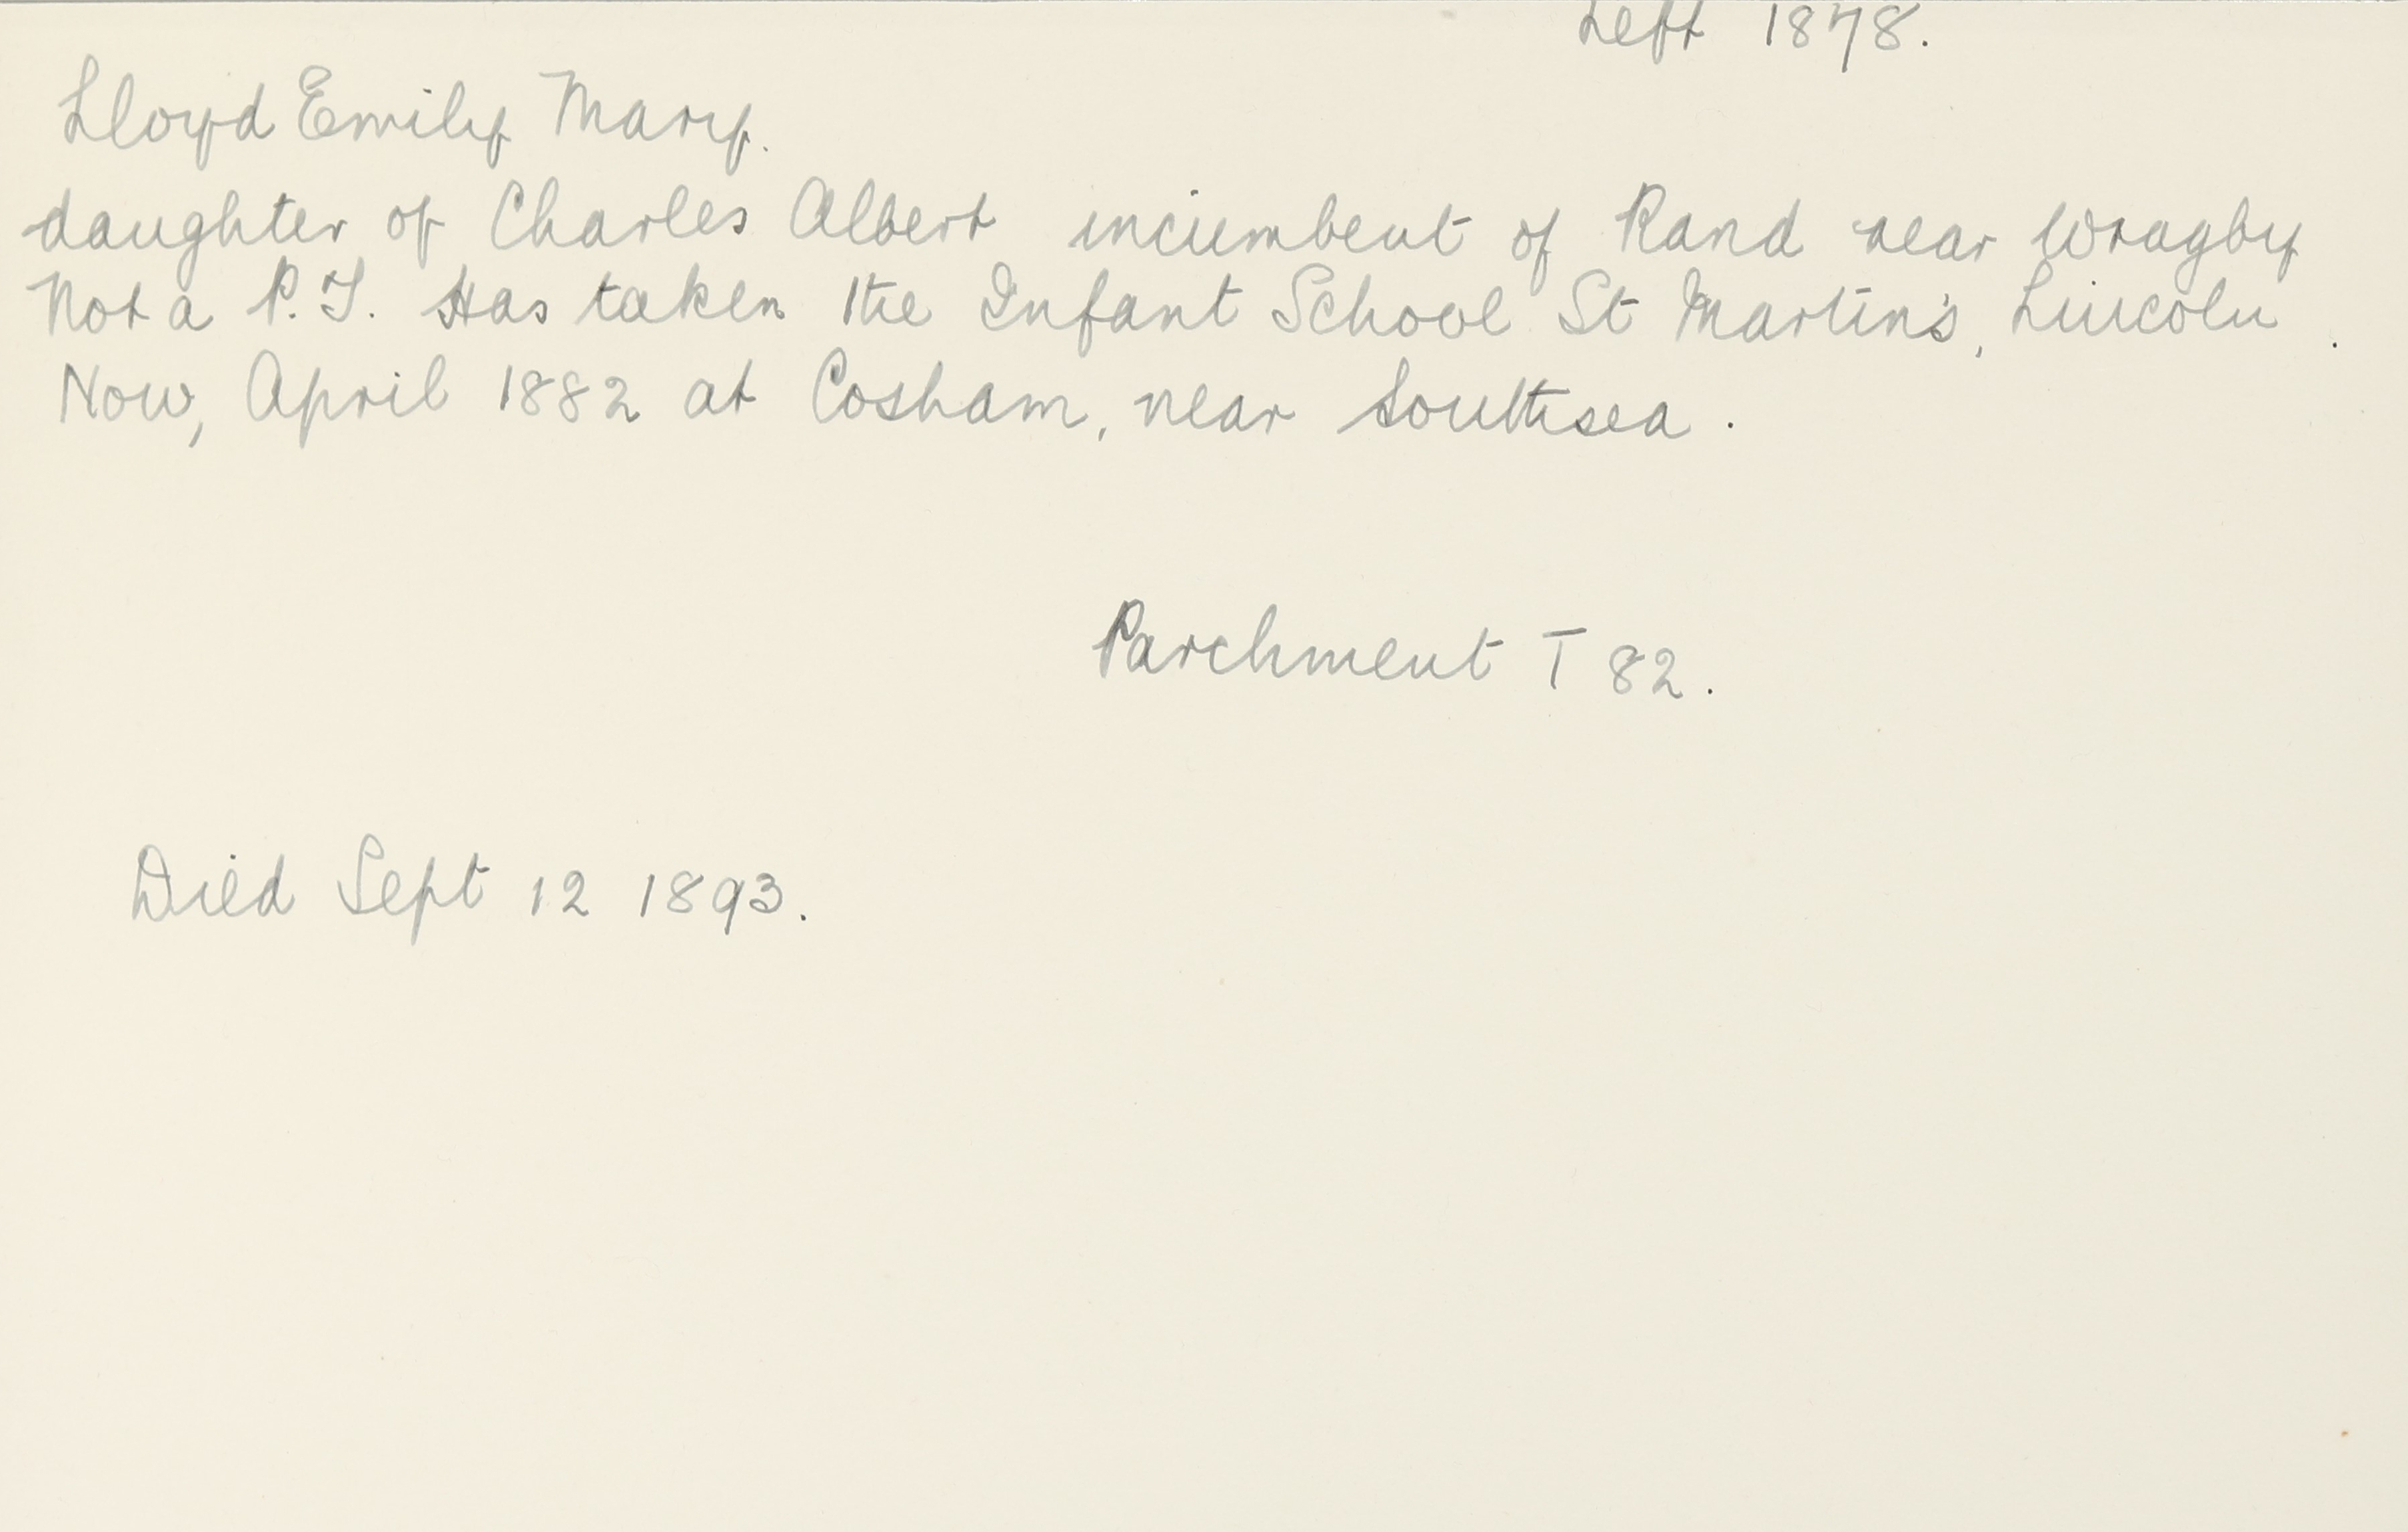 Left 1878.
Lloyd Emily Mary.
daughter of Charles Albert incumbent of Rand near Wragby
Not a P.T. Has taken the Infant School St Martin's, Lincoln.
Now, April 1882 at Cosham, near Southsea.
Parchment T 82.
Died Sept 12 1893.